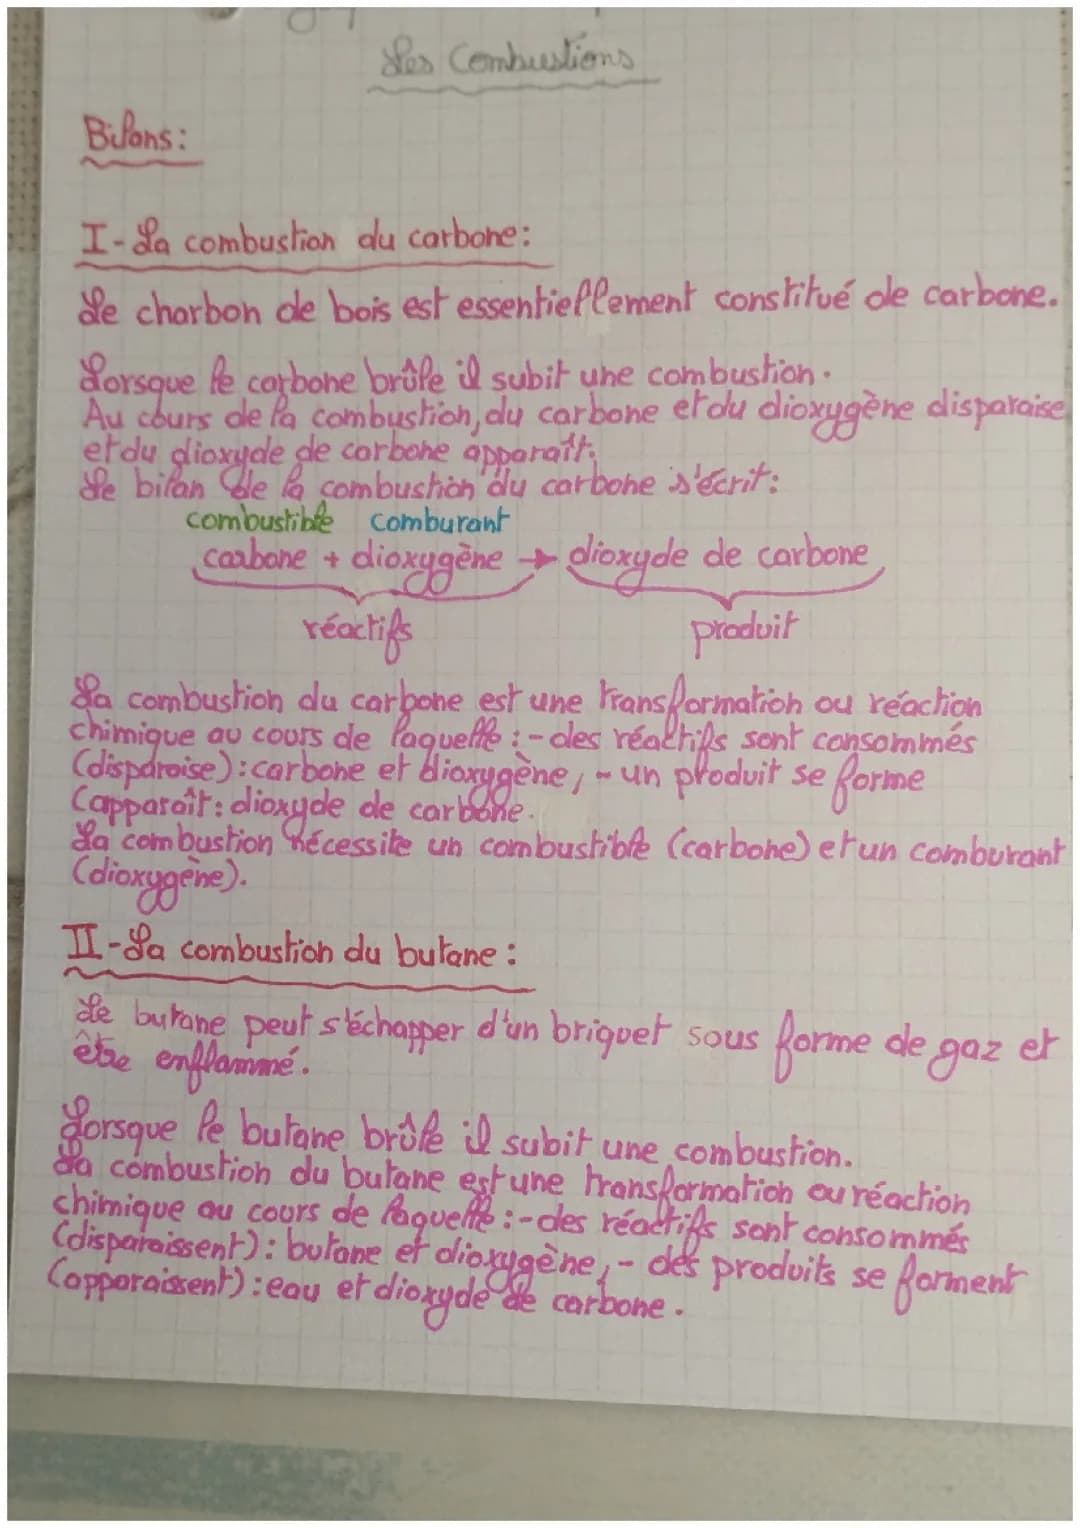 Les Combustions
Bilans:
I- La combustion du carbone:
Le charbon de bois est essentiellement constitué de carbone.
Lorsque le carbone brûle il subit une combustion.
Au cours de la combustion, du carbone et du dioxygène disparaise
et du dioxyde de carbone apparaît.
Le bilan de la combustion du carbone s'écrit:
combustible comburant
carbone + dioxygène → dioxyde de carbone
réactifs produit
La combustion du carbone est une transformation ou réaction
chimique au cours de laquelle :- des réactifs sont consommés
(disparaise): carbone et dioxygène, - un produit se forme
(apparaît: dioxyde de carbone.
La combustion nécessite un combustible (carbone) et un comburant
(dioxygène).
II- La combustion du butane :
Le butane peut s'échapper d'un briquet sous forme de gaz et
être enflammé.
Lorsque le butane brûle il subit une combustion.
La combustion du butane est une transformation ou réaction
chimique au cours de laquelle :- des réactifs sont consommés
(disparaissent) : butane et dioxygène, - des produits se forment
(apparaissent) : eau et dioxyde de carbone.